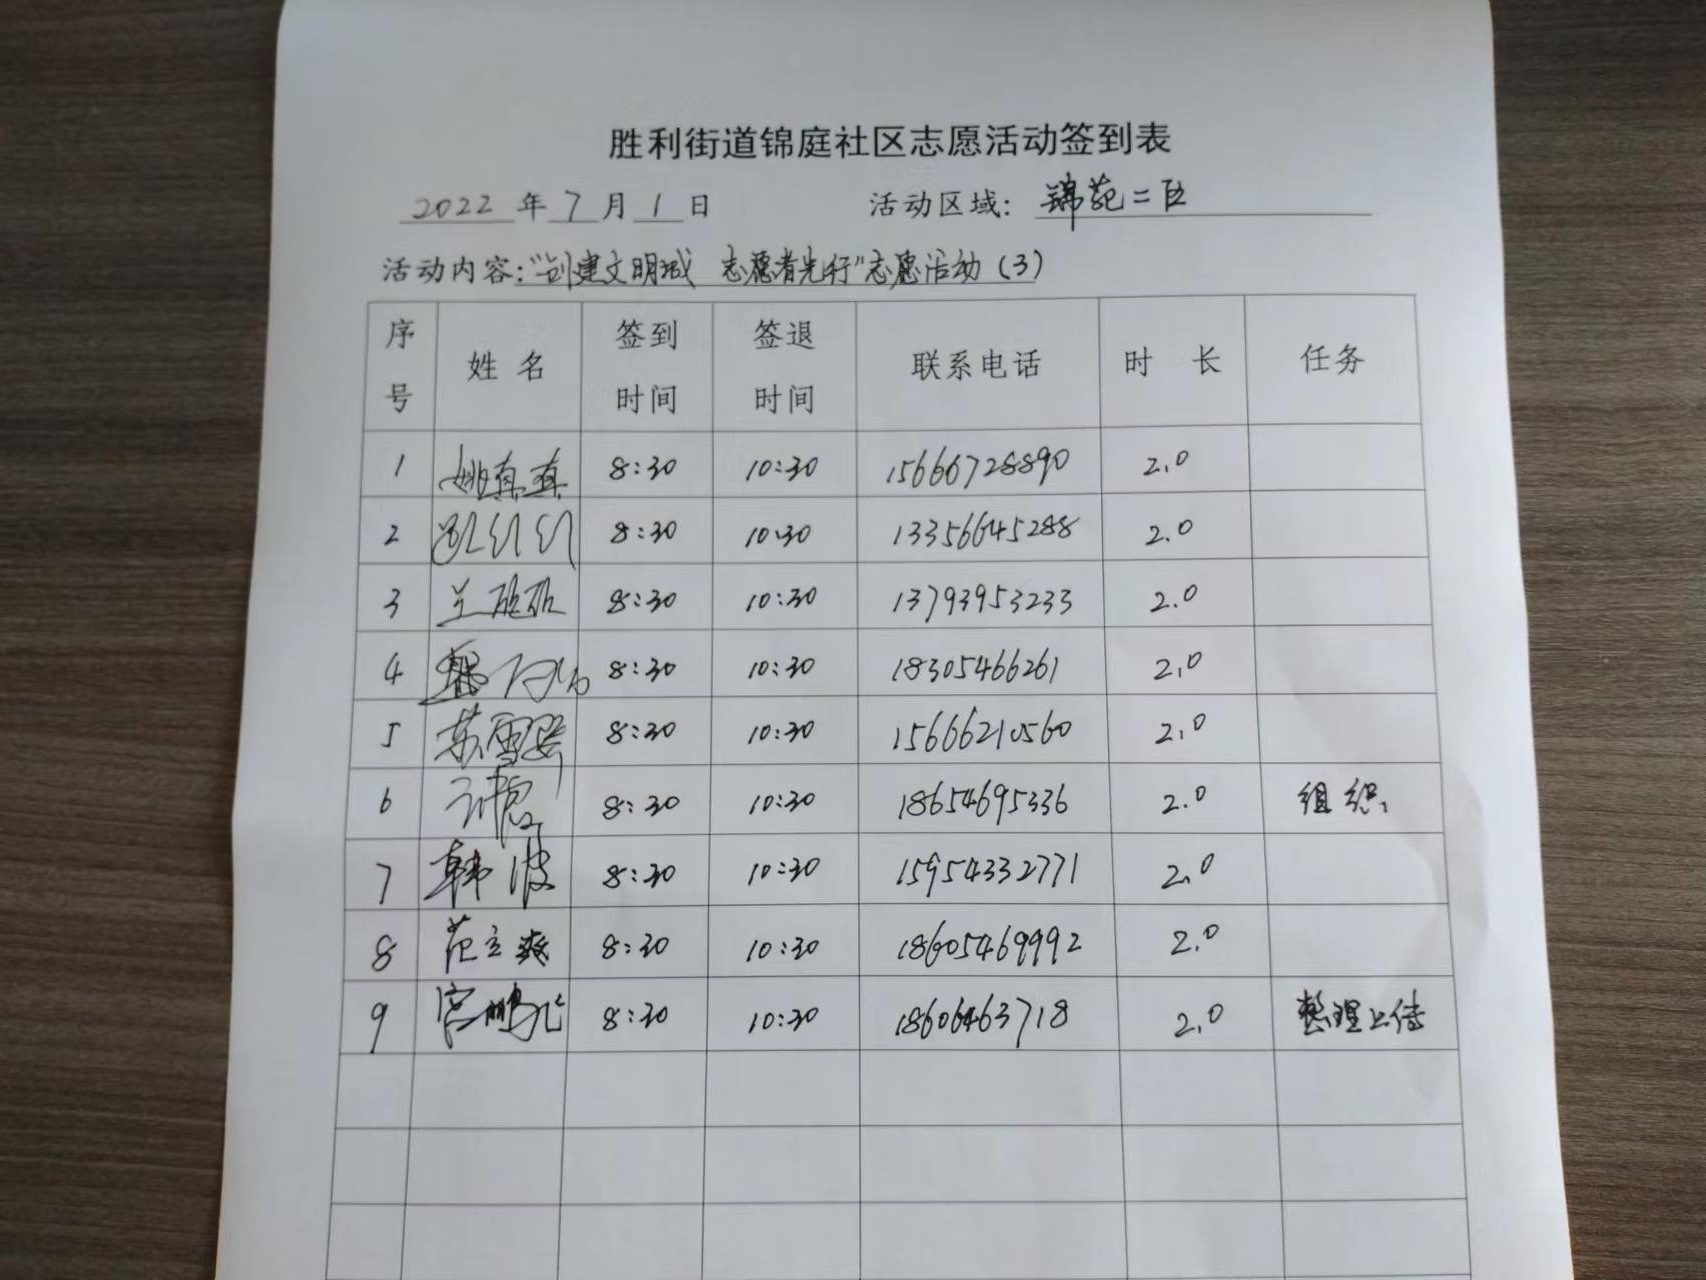 胜利街道锦庭社区志愿活动签到表
2022年7月1日 活动区域：锦苑二区
活动内容：“创建文明城 志愿者先行”志愿活动（3）
序号 姓名 签到时间 签退时间 联系电话 时长 任务
1 姚真真 8:30 10:30 15666728890 2.0
2 8:30 10:30 13356645288 2.0
3 兰 8:30 10:30 13793953233 2.0
4 8:30 10:30 18305466261 2.0
5 苏雪 8:30 10:30 15666210560 2.0
6 8:30 10:30 18654695336 2.0 组织
7 韩波 8:30 10:30 15954332771 2.0
8 范立爽 8:30 10:30 18605469992 2.0
9 宫鹏飞 8:30 10:30 18606463718 2.0 整理上传